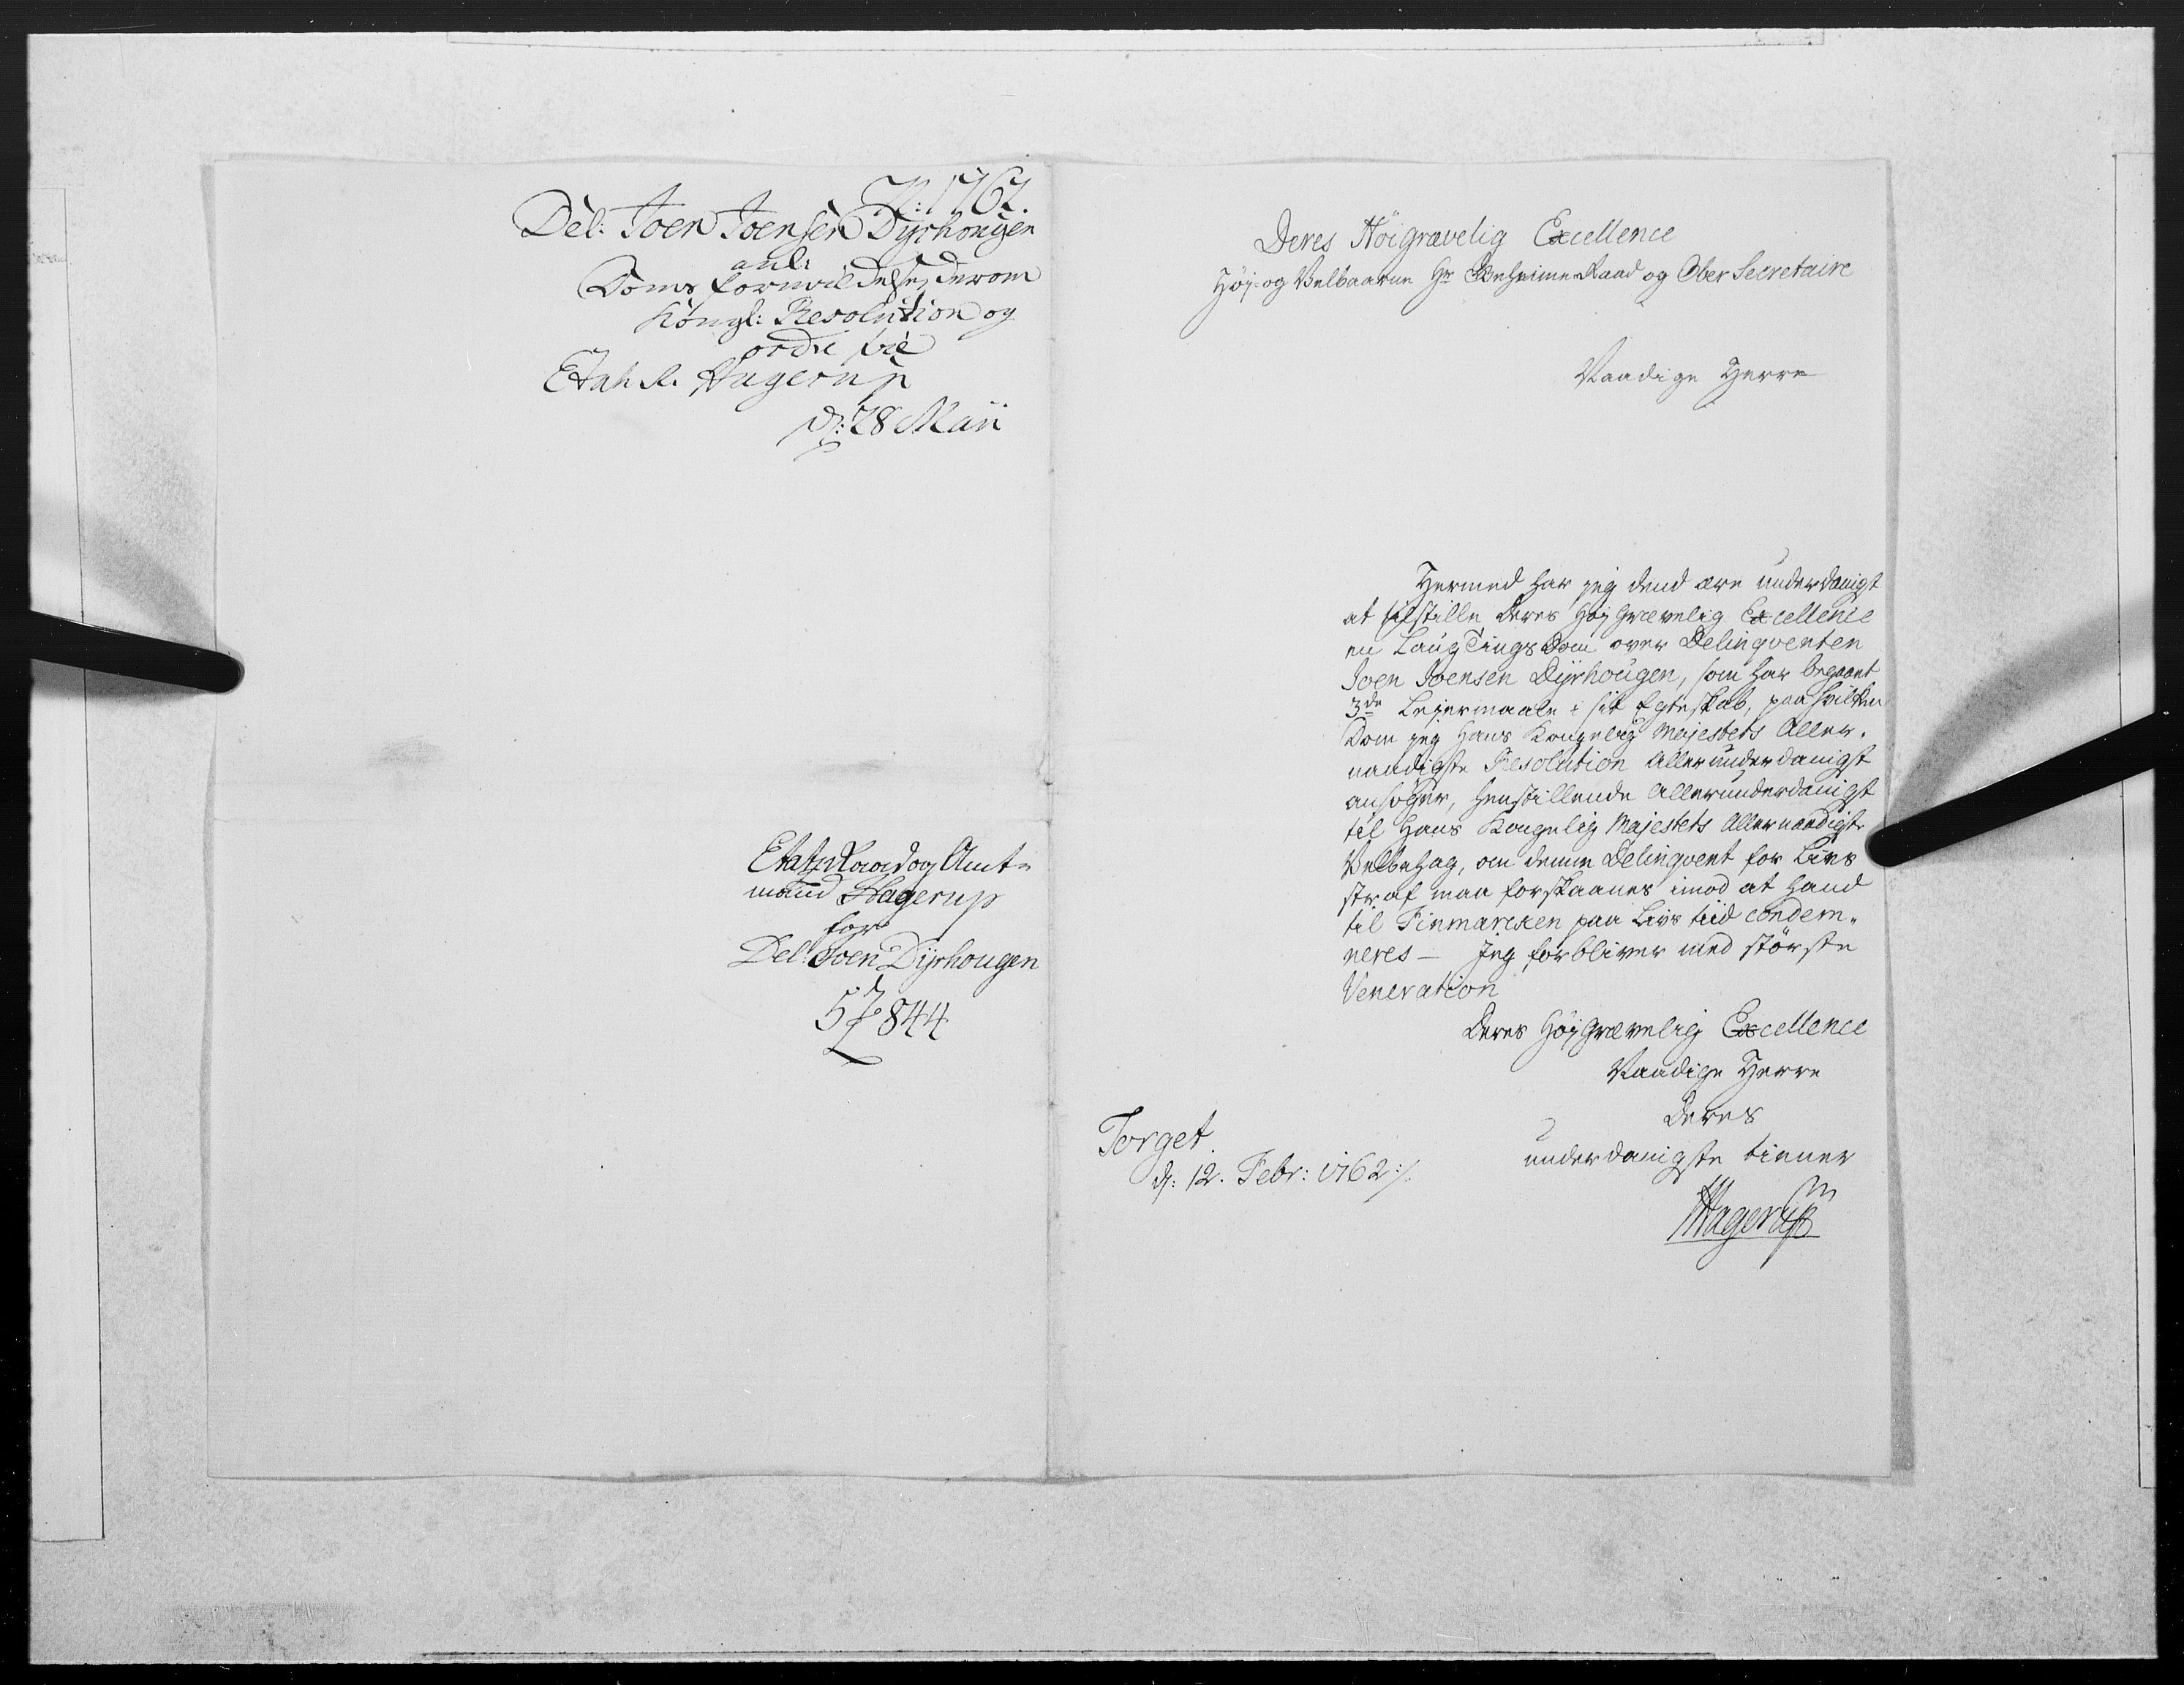 N: 1762.
Del: Joen Joensen Dyrhougen
anl:
Doms formildelse, derom
Kongl: Resolution og
ordre til
Etah R. Hagerup
d: 28 Maii
Etatz Raad og Amt-
mand Hagerup
for
Del: Joen Dyrhougen
57844
Deres Höigrævelig Excellence
Høj- og Velbaarne Hr Geheime Raad og Ober Secretaire
Naadige Herre
Hermed har jeg dend ære underdanigst
at tilstille Deres Høj Grævelig Excellence
en Laug Tings Dom over Delinqventen
Joen Joensen Dyrhougen, som har begaaet
3de Lejermaale i sit Egteskab, paa hvilken
Dom jeg Hans Kongelig Majestets Aller-
naadigste Resolution Allerunderdanigst
ansøger, henstillende Allerunderdanigst
til Hans Kongelig Majestets Allernaadigste
Velbehag, om denne Delinqvent for Livs
straf maa forskaanes imod at hand
til Finmarcken paa Livs tiid condem-
neres - Jeg forbliver med største
Veneration
Deres Høj Grævelig Excellence
Naadige Herre
Deres
underdanigste tienner
Hagerup
Torget.
d: 12. Febr: 1762 :/.